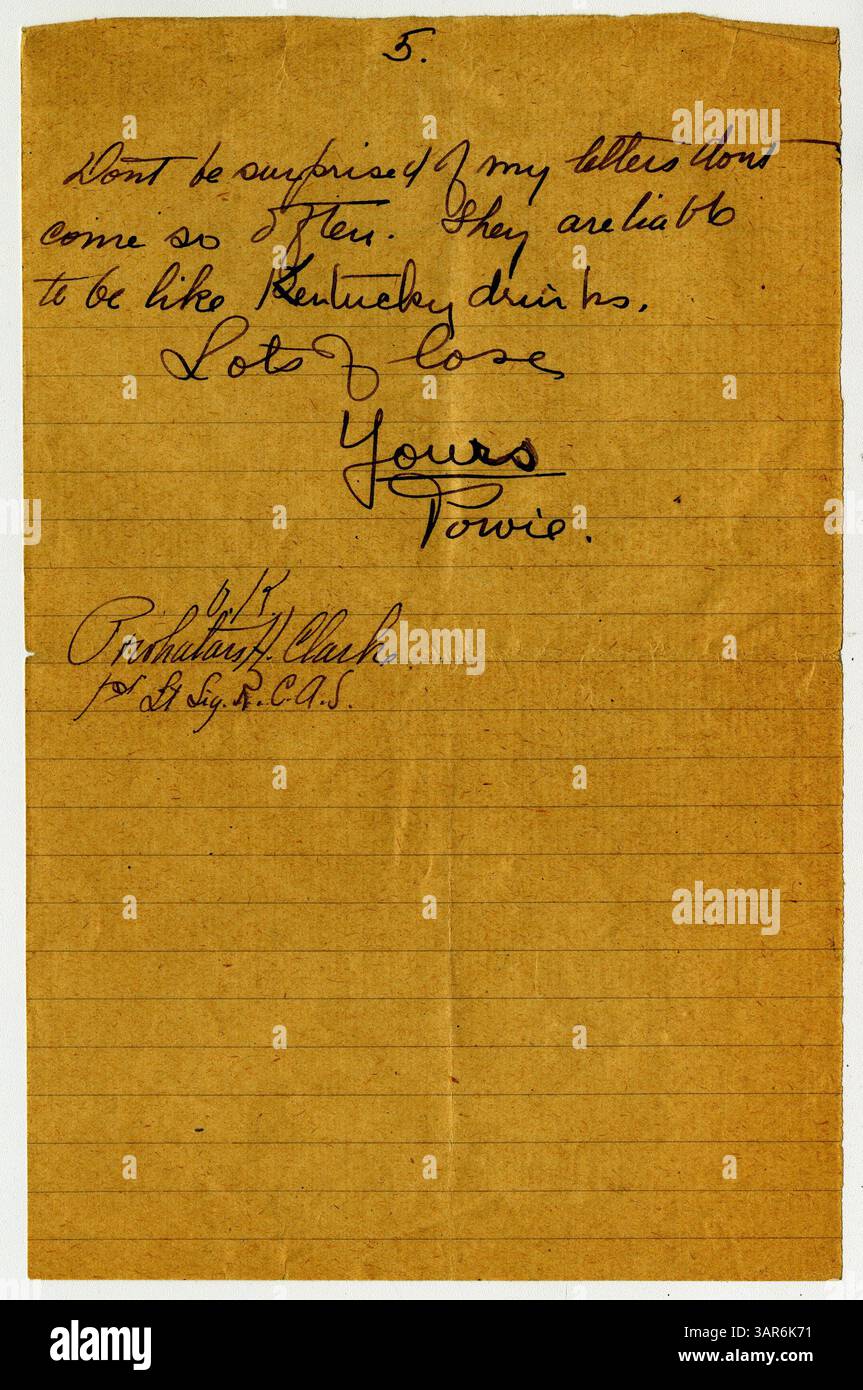 5.
Dont be surprised if my letters dont
come so often. They are liable
to be like Kentucky drinks.
Lots of love
Yours
Powie.
O.K.
Powhatan H. Clark
1st Lt Sig. R. C. A. S.
a
alamy
alamy
Image ID: 3AR6K71
www.alamy.com